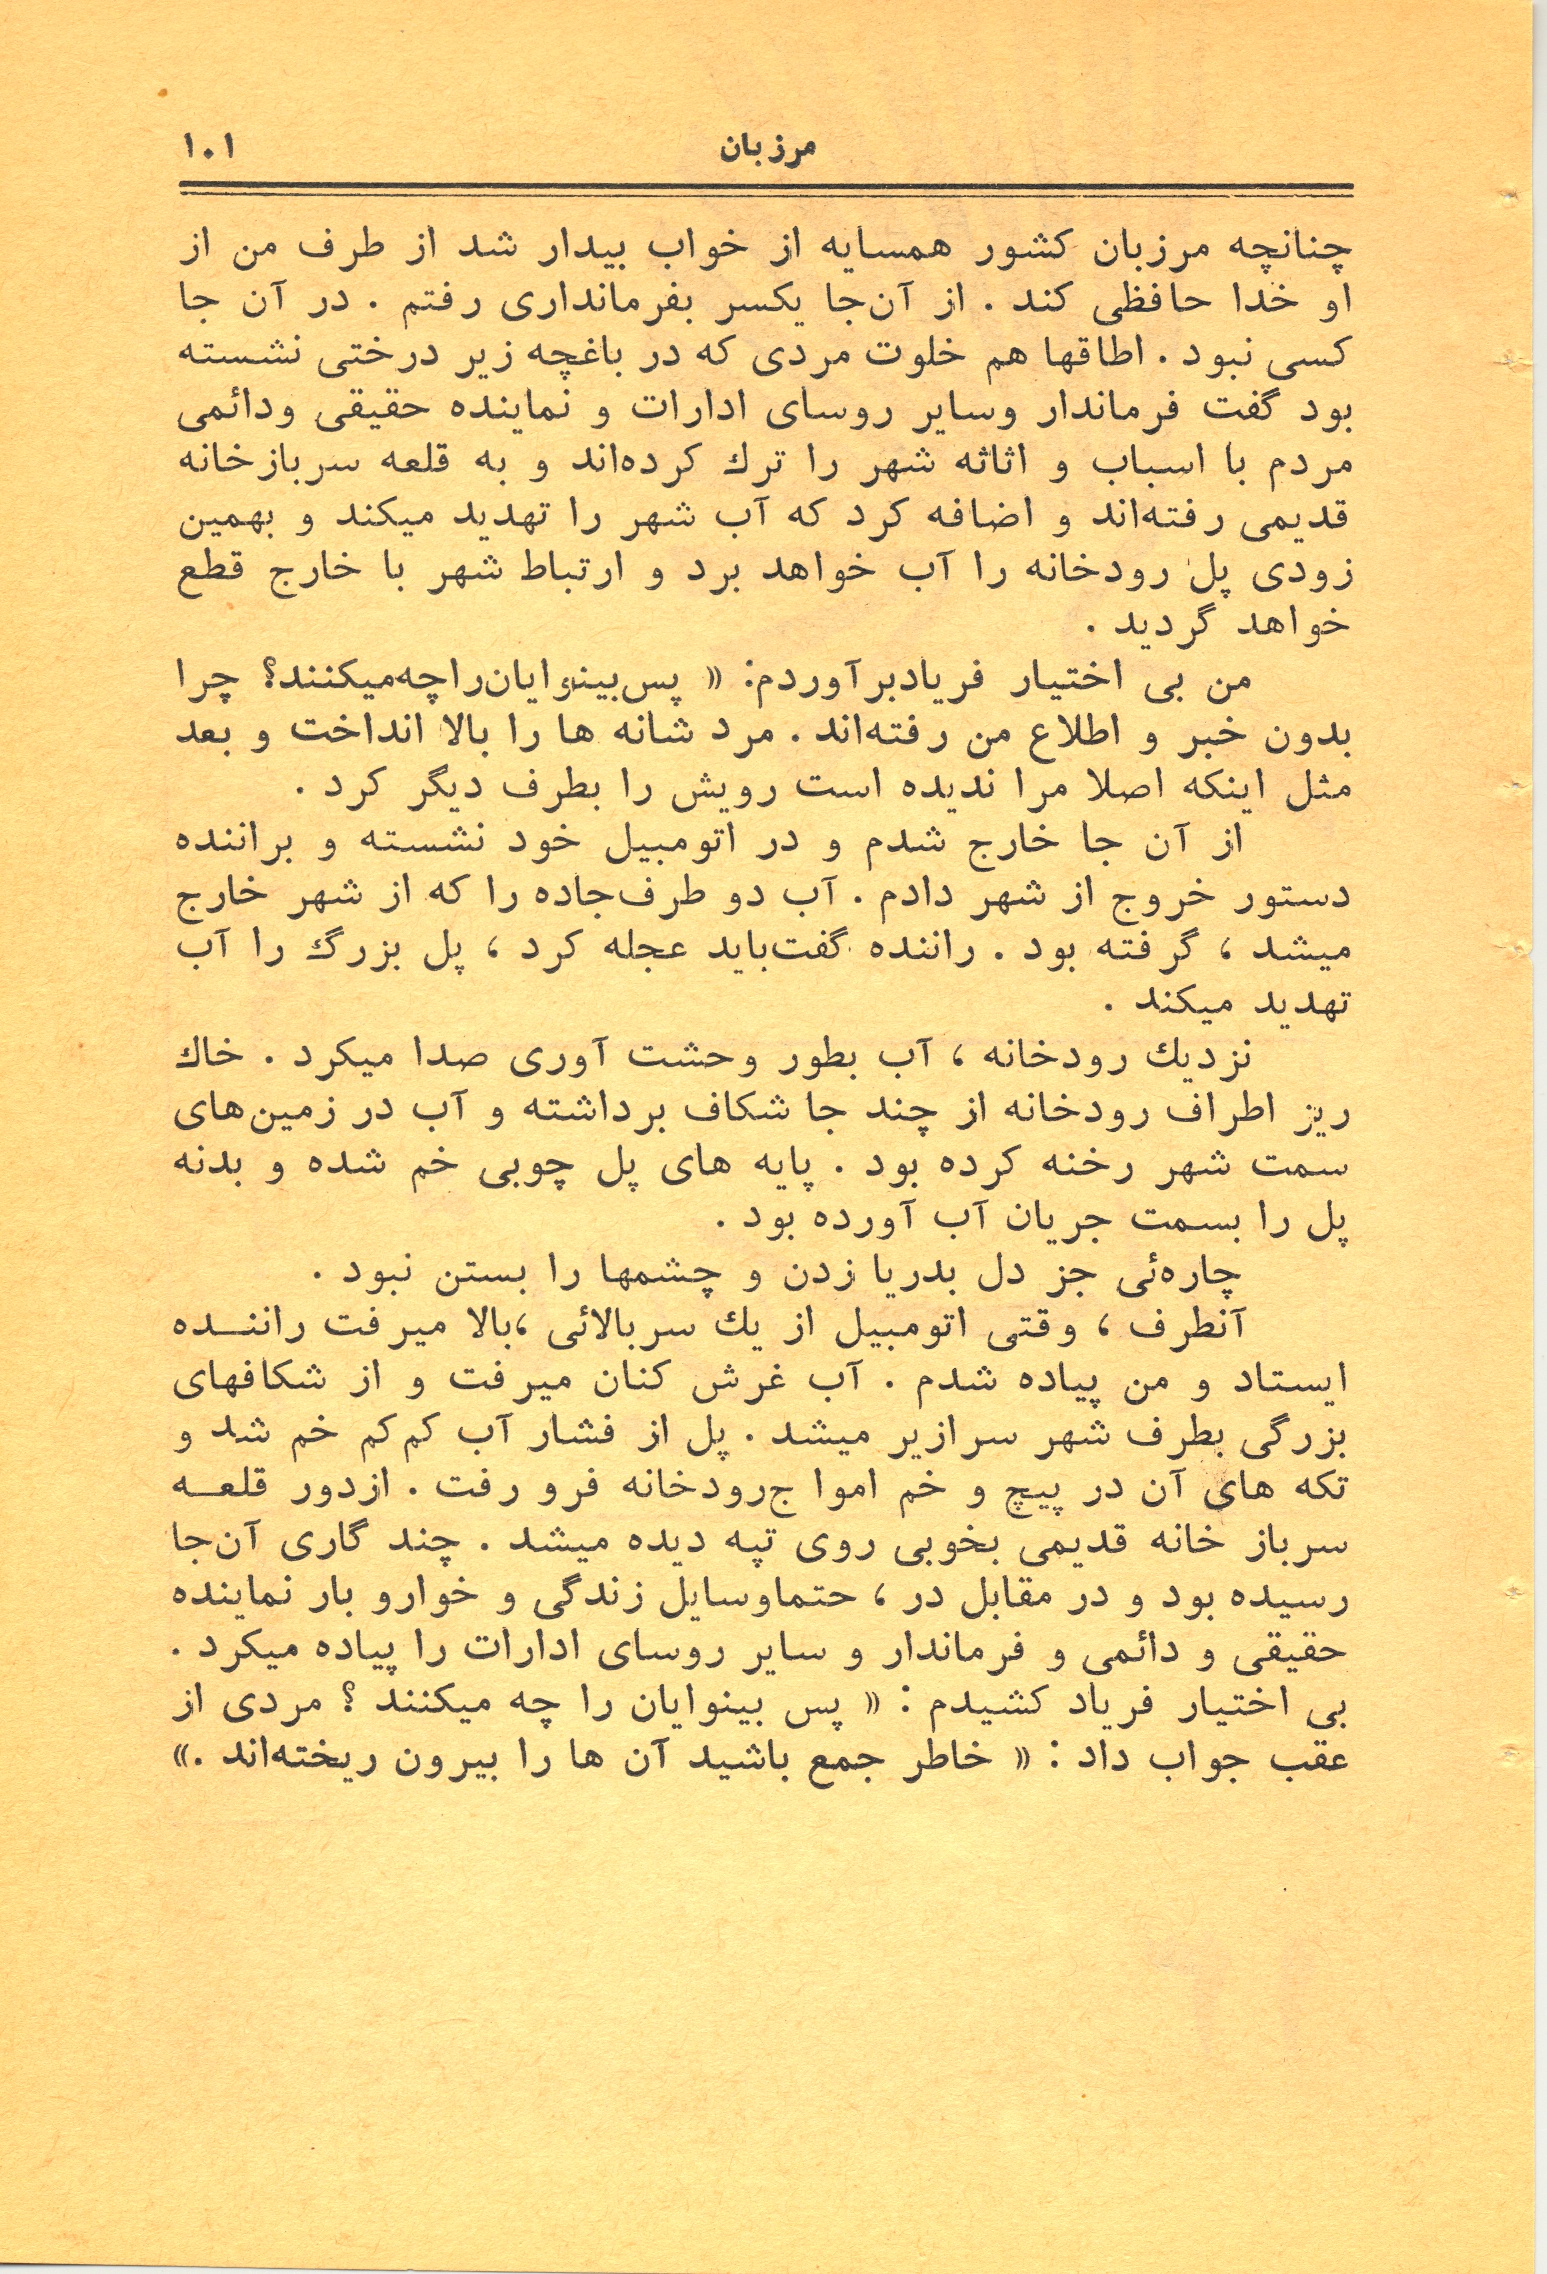 مرزبان ۱۰۱
چنانچه مرزبان کشور همسایه از خواب بیدار شد از طرف من از
او خدا حافظی کند . از آن‌جا یکسر بفرمانداری رفتم . در آن جا
کسی نبود . اطاقها هم خلوت مردی که در باغچه زیر درختی نشسته
بود گفت فرماندار وسایر روسای ادارات و نماینده حقیقی ودائمی
مردم با اسباب و اثاثه شهر را ترك کرده‌اند و به قلعه سربازخانه
قدیمی رفته‌اند و اضافه کرد که آب شهر را تهدید میکند و بهمین
زودی پل رودخانه را آب خواهد برد و ارتباط شهر با خارج قطع
خواهد گردید .
من بی اختیار فریادبرآوردم: « پس‌بینوایان‌راچه‌میکنند؟ چرا
بدون خبر و اطلاع من رفته‌اند . مرد شانه ها را بالا انداخت و بعد
مثل اینکه اصلا مرا ندیده است رویش را بطرف دیگر کرد .
از آن جا خارج شدم و در اتومبیل خود نشسته و براننده
دستور خروج از شهر دادم . آب دو طرف‌جاده را که از شهر خارج
میشد ، گرفته بود . راننده گفت‌باید عجله کرد ، پل بزرگ را آب
تهدید میکند .
نزدیك رودخانه ، آب بطور وحشت آوری صدا میکرد . خاك
ریز اطراف رودخانه از چند جا شکاف برداشته و آب در زمین‌های
سمت شهر رخنه کرده بود . پایه های پل چوبی خم شده و بدنه
پل را بسمت جریان آب آورده بود .
چاره‌ئی جز دل بدریا زدن و چشمها را بستن نبود .
آنطرف ، وقتی اتومبیل از یك سربالائی ،بالا میرفت راننـــده
ایستاد و من پیاده شدم . آب غرش کنان میرفت و از شکافهای
بزرگی بطرف شهر سرازیر میشد . پل از فشار آب کم‌کم خم شد و
تکه های آن در پیچ و خم اموا ج‌رودخانه فرو رفت . ازدور قلعــه
سرباز خانه قدیمی بخوبی روی تپه دیده میشد . چند گاری آن‌جا
رسیده بود و در مقابل در ، حتماوسایل زندگی و خوارو بار نماینده
حقیقی و دائمی و فرماندار و سایر روسای ادارات را پیاده میکرد .
بی اختیار فریاد کشیدم : « پس بینوایان را چه میکنند ؟ مردی از
عقب جواب داد : « خاطر جمع باشید آن ها را بیرون ریخته‌اند .»